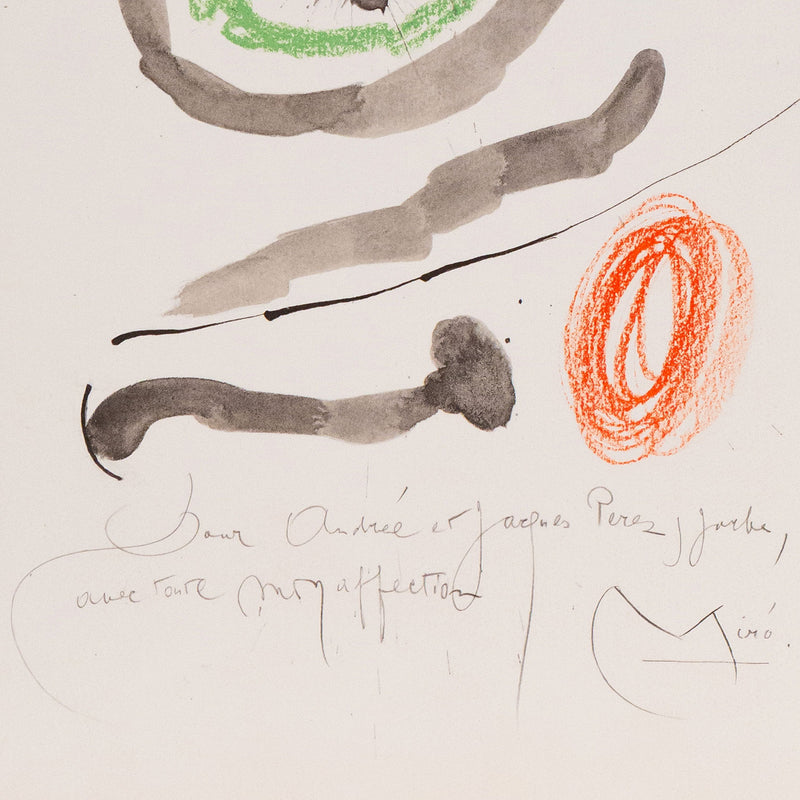 Pour Andrée et Jacques Perez y Jorba,
avec toute mon affection
Miró.